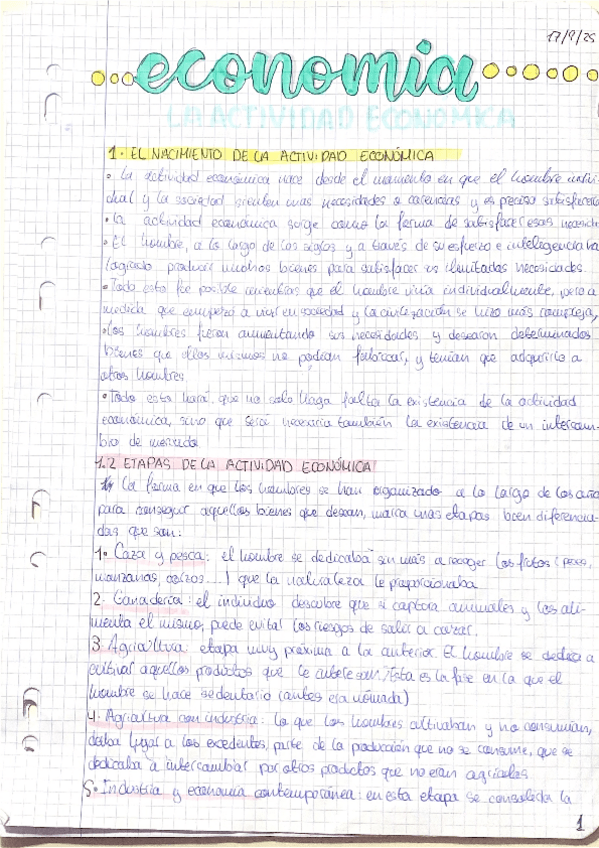 17/9/25
economía
LA ACTIVIDAD ECONÓMICA
1. EL NACIMIENTO DE LA ACTIVIDAD ECONÓMICA
• La actividad económica nace desde el momento en que el hombre indivi-
dual y la sociedad sienten unas necesidades o carencias y es preciso satisfacerlas
• La actividad económica surge como la forma de satisfacer esas necesida
• El hombre, a lo largo de los siglos y a través de su esfuerzo e inteligencia ha
logrado producir muchos bienes para satisfacer us ilimitadas necesidades.
• Todo esto fue posible mientras que el hombre vivía individualmente, pero a
medida que empezó a vivir en sociedad y la civilización se hizo más compleja,
• los hombres fueron aumentando sus necesidades y desearon determinados
bienes que ellos mismos no podían fabricar, y tenían que adquirirlo a
otros hombres.
• Todo esto hará, que no solo haga falta la existencia de la actividad
económica, sino que será necesaria también la existencia de un intercam-
bio de mercado
1.2 ETAPAS DE LA ACTIVIDAD ECONÓMICA
La forma en que los hombres se han organizado a lo largo de los año
para conseguir aquellos bienes que desean, marca unas etapas bien diferencia-
das que son:
1. Caza y pesca: el hombre se dedicaba sin más a recoger los frutos (peces,
manzanas, corzos...) que la naturaleza le proporcionaba
2. Ganadería: el individuo descubre que si captura animales y los ali-
menta él mismo, puede evitar los riesgos de salir a cazar.
3. Agricultura: etapa muy próxima a la anterior. El hombre se dedica a
cultivar aquellos productos que le interesan. Esta es la fase en la que el
hombre se hace sedentario (antes era nómada)
4. Agricultura con industria: lo que los hombres cultivaban y no consumían,
daba lugar a los excedentes, parte de la producción que no se consume, que se
dedicaba a intercambiar por otros productos que no eran agrícolas
5. Industria y economía contemporánea: en esta etapa se consolida la
1